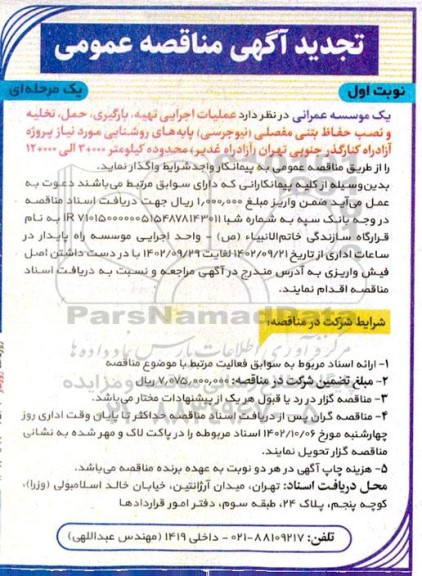 تجدید آگهی مناقصه عمومی
نوبت اول
یک مرحله‌ای
یک موسسه عمرانی در نظر دارد عملیات اجرایی تهیه، بارگیری، حمل، تخلیه
و نصب حفاظ بتنی مفصلی (نیوجرسی) پایه‌های روشنایی مورد نیاز پروژه
آزادراه کنارگذر جنوبی تهران (آزادراه غدیر) محدوده کیلومتر ۳+۰۰۰ الی ۱۲+۰۰۰
را از طریق مناقصه عمومی به پیمانکار واجد شرایط واگذار نماید.
بدین‌وسیله از کلیه پیمانکارانی که دارای سوابق مرتبط می‌باشند دعوت به
عمل می‌آید ضمن واریز مبلغ ۱,۰۰۰,۰۰۰ ریال جهت دریافت اسناد مناقصه
در وجه بانک سپه به شماره شبا IR ۷۱۰۱۵۰۰۰۰۰۰۵۱۵۴۸۷۸۱۴۳۰۱۱ به نام
قرارگاه سازندگی خاتم‌الانبیاء (ص) - واحد اجرایی موسسه راه پایدار در
ساعات اداری از تاریخ ۱۴۰۲/۰۹/۲۱ لغایت ۱۴۰۲/۰۹/۲۹ با در دست داشتن اصل
فیش واریزی به آدرس مندرج در آگهی مراجعه و نسبت به دریافت اسناد
مناقصه اقدام نمایند.
ParsNamadData
شرایط شرکت در مناقصه:
مرکز فرآوری اطلاعات پارس نماد داده ها
۱- ارائه اسناد مربوط به سوابق فعالیت مرتبط با موضوع مناقصه
۲- مبلغ تضمین شرکت در مناقصه: ۷,۰۷۵,۰۰۰,۰۰۰ ریال
۳- مناقصه گزار در رد یا قبول هر یک از پیشنهادات مختار می‌باشد.
۴- مناقصه گران پس از دریافت اسناد مناقصه حداکثر تا پایان وقت اداری روز
چهارشنبه مورخ ۱۴۰۲/۱۰/۰۶ اسناد مربوطه را در پاکت لاک و مهر شده به نشانی
مناقصه گزار تحویل نمایند.
۵- هزینه چاپ آگهی در هر دو نوبت به عهده برنده مناقصه می‌باشد.
محل دریافت اسناد: تهران، میدان آرژانتین، خیابان خالد اسلامبولی (وزرا)،
کوچه پنجم، پلاک ۲۴، طبقه سوم، دفتر امور قراردادها
تلفن: ۸۸۱۰۹۲۱۷-۰۲۱ - داخلی ۱۴۱۹ (مهندس عبداللهی)